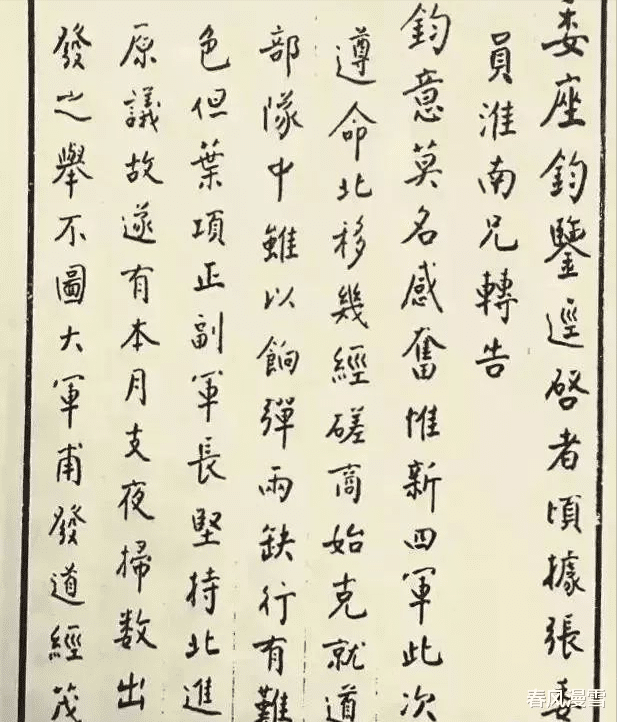 委座鈞鑒逕啓者頃據張委
員淮南兄轉告
鈞意莫名感奮惟新四軍此次
遵命北移幾經磋商始克就道
部隊中雖以餉彈兩缺行有難
色但葉項正副軍長堅持北進
原議故遂有本月支夜掃數出
發之舉不圖大軍甫發道經茂
春风漫雪